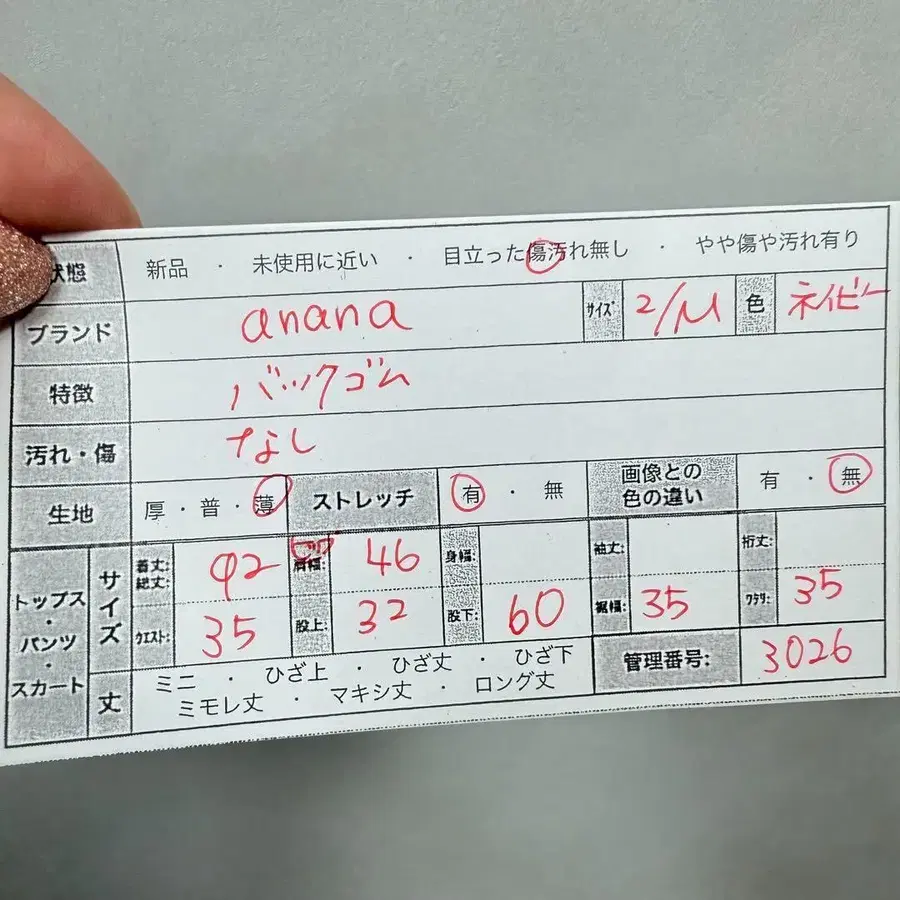 状態 新品 ・ 未使用に近い ・ 目立った傷汚れ無し ・ やや傷や汚れ有り
ブランド anana サイズ 2/M 色 ネイビー
特徴 バックゴム
汚れ・傷 なし
生地 厚・普・薄 ストレッチ 有 ・ 無 画像との色の違い 有 ・ 無
トップス・パンツ・スカート サイズ 着丈:総丈: 92 ヒップ 肩幅: 46 身幅: 袖丈: 裄丈:
ウエスト: 35 股上: 32 股下: 60 裾幅: 35 ワタリ: 35
丈 ミニ ・ ひざ上 ・ ひざ丈 ・ ひざ下 管理番号: 3026
ミモレ丈 ・ マキシ丈 ・ ロング丈